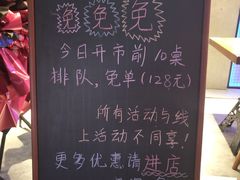 免 免 免
今日开市前10桌
排队,免单(128元)
所有活动与线
上活动不同享!
更多优惠请进店